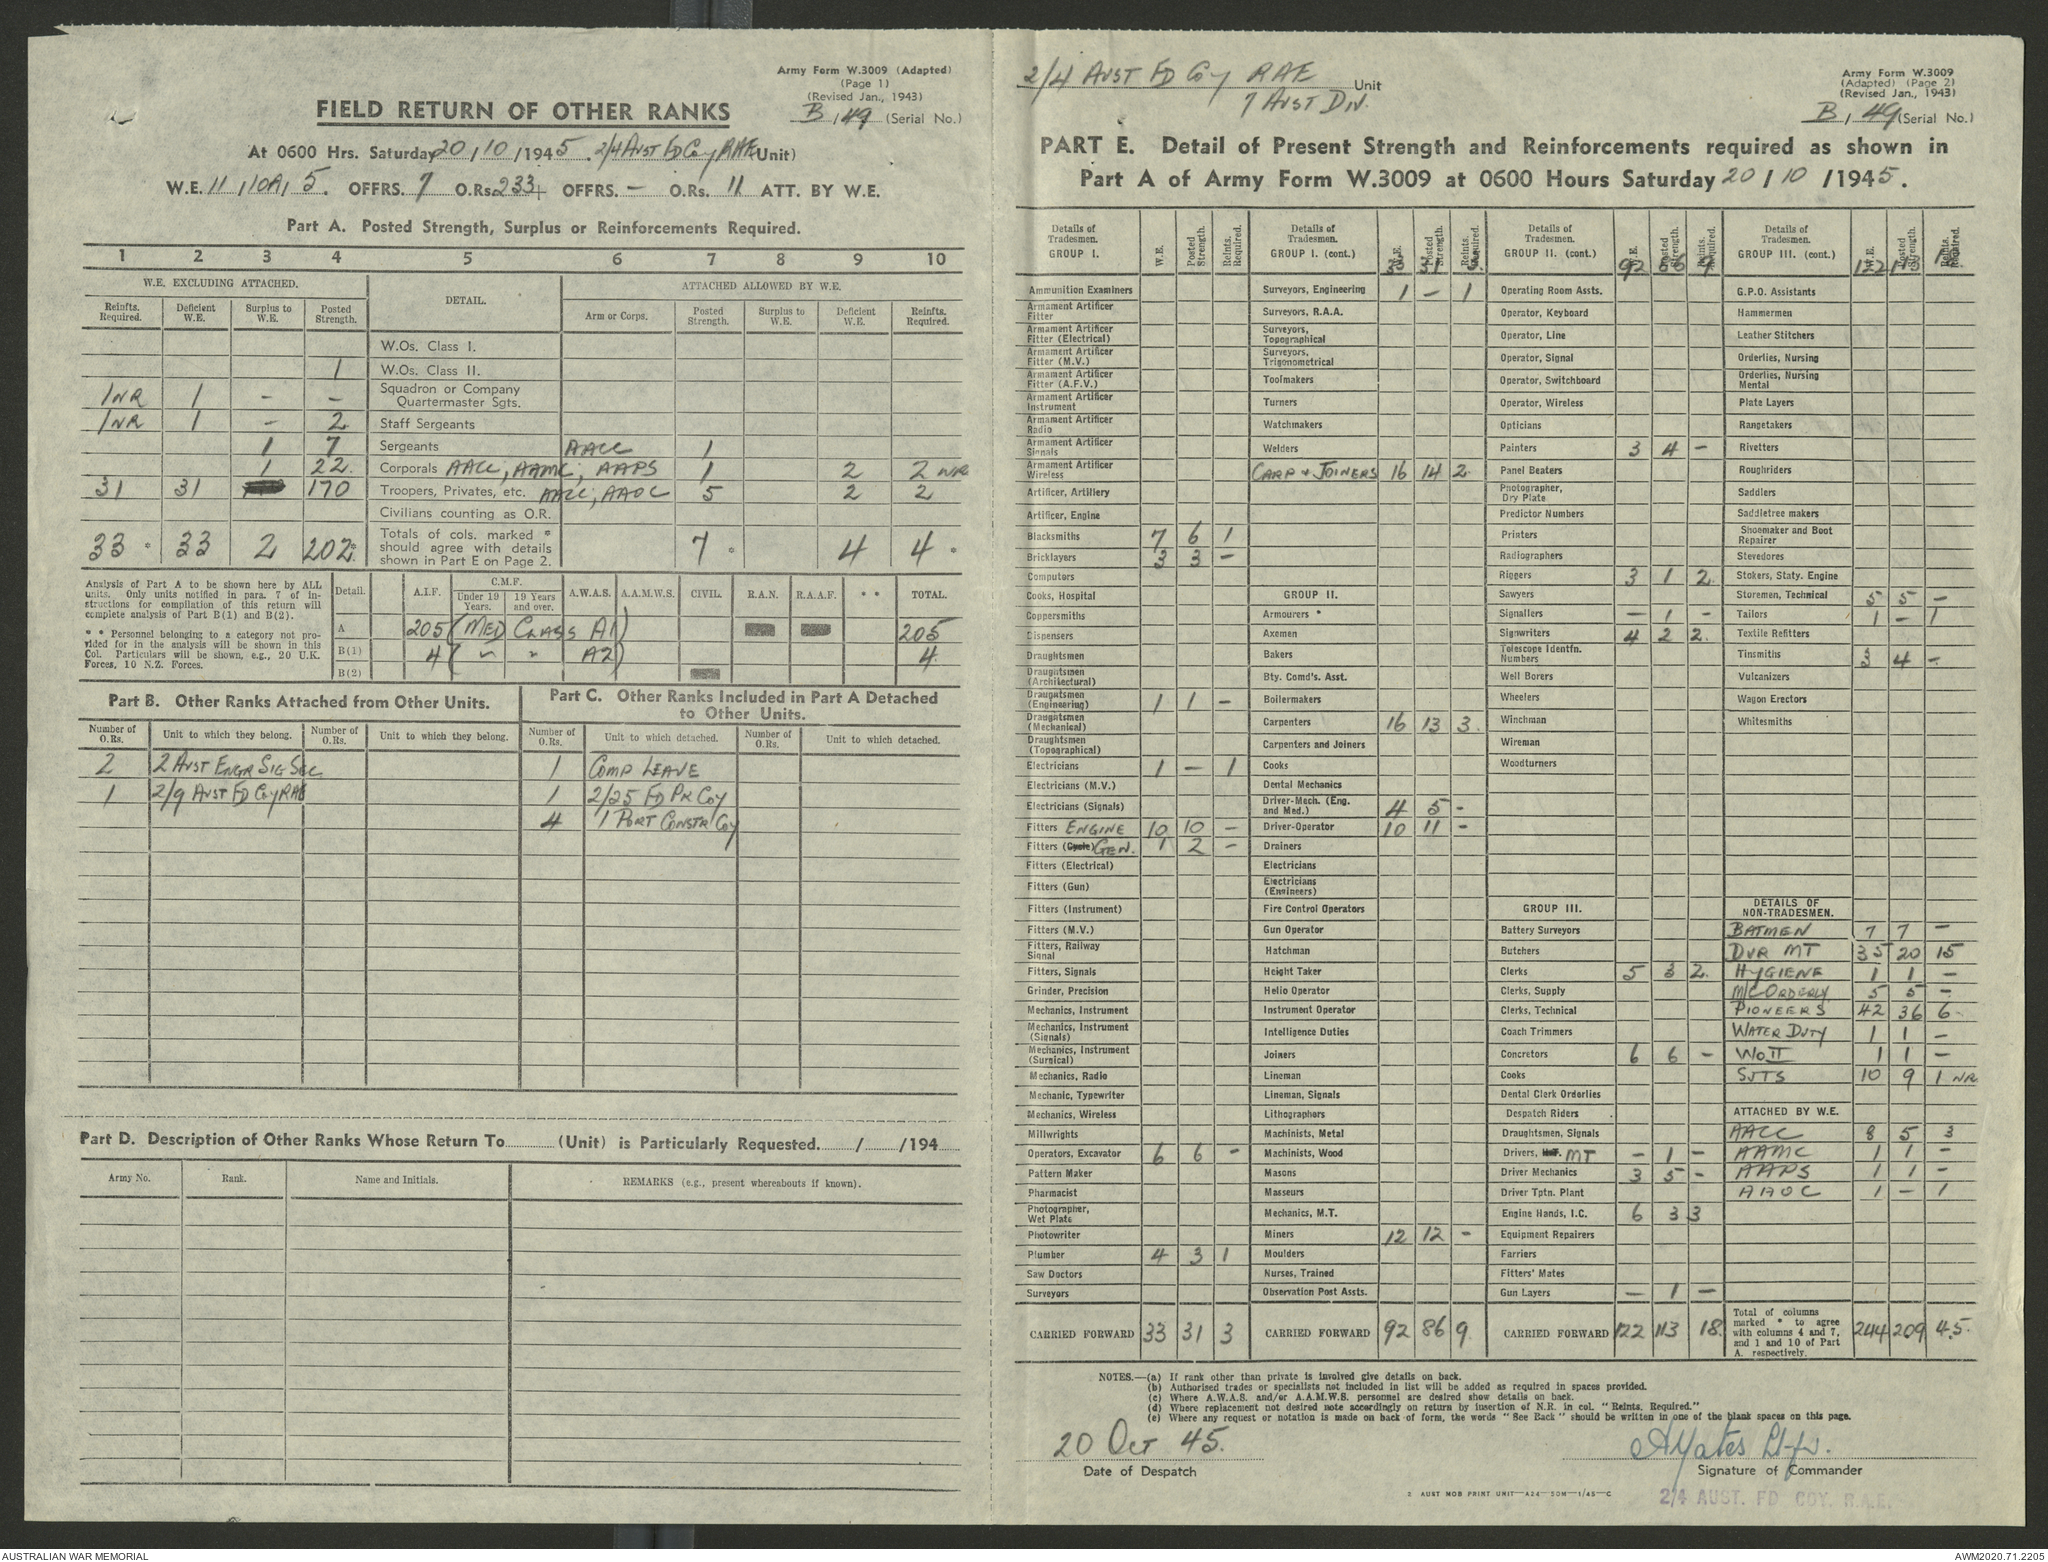 Army Form W.3009 (Adapted)
(Page 1)
(Revised Jan., 1943)
B / 49 (Serial No.)
FIELD RETURN OF OTHER RANKS
At 0600 Hrs. Saturday 20/10/1945. 2/4 Aust Fd Coy RAE (Unit)
W.E. 11/10A/5. OFFRS. 7 O.Rs. 233 + OFFRS. — O.Rs. 11 ATT. BY W.E.
Part A. Posted Strength, Surplus or Reinforcements Required.
1 2 3 4 5 6 7 8 9 10
W.E. EXCLUDING ATTACHED. DETAIL. ATTACHED ALLOWED BY W.E.
Reinfts. Required. Deficient W.E. Surplus to W.E. Posted Strength. Arm or Corps. Posted Strength. Surplus to W.E. Deficient W.E. Reinfts. Required.
W.Os. Class I.
1 W.Os. Class II.
1 NR 1 - - Squadron or Company Quartermaster Sgts.
1 NR 1 - 2 Staff Sergeants
1 7 Sergeants AACC 1
1 22 Corporals AACC, AAMC, AAPS 1 2 2 NR
31 31 170 Troopers, Privates, etc. AACC, AAOC 5 2 2
Civilians counting as O.R.
33 * 33 2 202 * Totals of cols. marked * should agree with details shown in Part E on Page 2. 7 * 4 4 *
Analysis of Part A to be shown here by ALL units. Only units notified in para. 7 of instructions for compilation of this return will complete analysis of Part B(1) and B(2).
* * Personnel belonging to a category not provided for in the analysis will be shown in this Col. Particulars will be shown, e.g., 20 U.K. Forces, 10 N.Z. Forces.
Detail. A.I.F. C.M.F. Under 19 Years. 19 Years and over. A.W.A.S. A.A.M.W.S. CIVIL. R.A.N. R.A.A.F. * * TOTAL.
A 205 (MED CLASS A1) 205
B(1) 4 ( " " A2) 4
B(2)
Part B. Other Ranks Attached from Other Units.
Number of O.Rs. Unit to which they belong. Number of O.Rs. Unit to which they belong.
2 2 Aust Engr Sig Sec
1 2/9 Aust Fd Coy RAE
Part C. Other Ranks Included in Part A Detached to Other Units.
Number of O.Rs. Unit to which detached. Number of O.Rs. Unit to which detached.
1 Comp Leave
1 2/25 Fd Pk Coy
4 1 Port Constr Coy
Part D. Description of Other Ranks Whose Return To (Unit) is Particularly Requested. / /194
Army No. Rank. Name and Initials. REMARKS (e.g., present whereabouts if known).
2/4 Aust Fd Coy RAE Unit
7 Aust Div.
Army Form W.3009
(Adapted) (Page 2)
(Revised Jan., 1943)
B / 49 (Serial No.)
PART E. Detail of Present Strength and Reinforcements required as shown in
Part A of Army Form W.3009 at 0600 Hours Saturday 20/10/1945.
Details of Tradesmen. GROUP I. W.E. Posted Strength. Reints. Required.
Ammunition Examiners
Armament Artificer Fitter
Armament Artificer Fitter (Electrical)
Armament Artificer Fitter (M.V.)
Armament Artificer Fitter (A.F.V.)
Armament Artificer Instrument
Armament Artificer Radio
Armament Artificer Signals
Armament Artificer Wireless
Artificer, Artillery
Artificer, Engine
Blacksmiths 7 6 1
Bricklayers 3 3 -
Computors
Cooks, Hospital
Coppersmiths
Dispensers
Draughtsmen
Draughtsmen (Architectural)
Draughtsmen (Engineering) 1 1 -
Draughtsmen (Mechanical)
Draughtsmen (Topographical)
Electricians 1 - 1
Electricians (M.V.)
Electricians (Signals)
Fitters ENGINE 10 10 -
Fitters (Cycle) GEN. 1 2 -
Fitters (Electrical)
Fitters (Gun)
Fitters (Instrument)
Fitters (M.V.)
Fitters, Railway Signal
Fitters, Signals
Grinder, Precision
Mechanics, Instrument
Mechanics, Instrument (Signals)
Mechanics, Instrument (Surgical)
Mechanics, Radio
Mechanic, Typewriter
Mechanics, Wireless
Millwrights
Operators, Excavator 6 6 -
Pattern Maker
Pharmacist
Photographer, Wet Plate
Photowriter
Plumber 4 3 1
Saw Doctors
Surveyors
CARRIED FORWARD 33 31 3
Details of Tradesmen. GROUP I. (cont.) W.E. Posted Strength. Reints. Required. 33 31 3
Surveyors, Engineering 1 - 1
Surveyors, R.A.A.
Surveyors, Topographical
Surveyors, Trigonometrical
Toolmakers
Turners
Watchmakers
Welders
CARP & JOINERS 16 14 2
GROUP II.
Armourers *
Axemen
Bakers
Bty. Comd's. Asst.
Boilermakers
Carpenters 16 13 3
Carpenters and Joiners
Cooks
Dental Mechanics
Driver-Mech. (Eng. and Med.) 4 5 -
Driver-Operator 10 11 -
Drainers
Electricians
Electricians (Engineers)
Fire Control Operators
Gun Operator
Hatchman
Height Taker
Helio Operator
Instrument Operator
Intelligence Duties
Joiners
Lineman
Lineman, Signals
Lithographers
Machinists, Metal
Machinists, Wood
Masons
Masseurs
Mechanics, M.T.
Miners 12 12 -
Moulders
Nurses, Trained
Observation Post Assts.
CARRIED FORWARD 92 86 9
Details of Tradesmen. GROUP II. (cont.) W.E. Posted Strength. Reints. Required. 92 86 9
Operating Room Assts.
Operator, Keyboard
Operator, Line
Operator, Signal
Operator, Switchboard
Operator, Wireless
Opticians
Painters 3 4 -
Panel Beaters
Photographer, Dry Plate
Predictor Numbers
Printers
Radiographers
Riggers 3 1 2
Sawyers
Signallers - 1 -
Signwriters 4 2 2
Telescope Identfn. Numbers
Well Borers
Wheelers
Winchman
Wireman
Woodturners
GROUP III.
Battery Surveyors
Butchers
Clerks 5 3 2
Clerks, Supply
Clerks, Technical
Coach Trimmers
Concretors 6 6 -
Cooks
Dental Clerk Orderlies
Despatch Riders
Draughtsmen, Signals
Drivers, MT - 1 -
Driver Mechanics 3 5 -
Driver Tptn. Plant
Engine Hands, I.C. 6 3 3
Equipment Repairers
Farriers
Fitters' Mates
Gun Layers - 1 -
CARRIED FORWARD 122 113 18
Details of Tradesmen. GROUP III. (cont.) W.E. Posted Strength. Reints. Required. 122 113 18
G.P.O. Assistants
Hammermen
Leather Stitchers
Orderlies, Nursing
Orderlies, Nursing Mental
Plate Layers
Rangetakers
Rivetters
Roughriders
Saddlers
Saddletree makers
Shoemaker and Boot Repairer
Stevedores
Stokers, Staty. Engine
Storemen, Technical 5 5 -
Tailors 1 - 1
Textile Refitters
Tinsmiths 3 4 -
Vulcanizers
Wagon Erectors
Whitesmiths
DETAILS OF NON-TRADESMEN.
BATMEN 7 7 -
DVR MT 35 20 15
HYGIENE 1 1 -
M/C ORDERLY 5 5 -
PIONEERS 42 36 6
WATER DUTY 1 1 -
WOII 1 1 -
SJTS 10 9 1 NR
ATTACHED BY W.E.
AACC 8 5 3
AAMC 1 1 -
AAPS 1 1 -
AAOC 1 - 1
Total of columns marked * to agree with columns 4 and 7, and 1 and 10 of Part A, respectively. 244 209 45
NOTES.—(a) If rank other than private is involved give details on back.
(b) Authorised trades or specialists not included in list will be added as required in spaces provided.
(c) Where A.W.A.S. and/or A.A.M.W.S. personnel are desired show details on back.
(d) Where replacement not desired note accordingly on return by insertion of N.R. in col. "Reints. Required."
(e) Where any request or notation is made on back of form, the words "See Back" should be written in one of the blank spaces on this page.
20 Oct 45.
Date of Despatch
AYates Lt
Signature of Commander
2 AUST MOB PRINT UNIT—A24—50M—1/45—C
2/4 AUST. FD COY. R.A.E.
AUSTRALIAN WAR MEMORIAL
AWM2020.71.2205